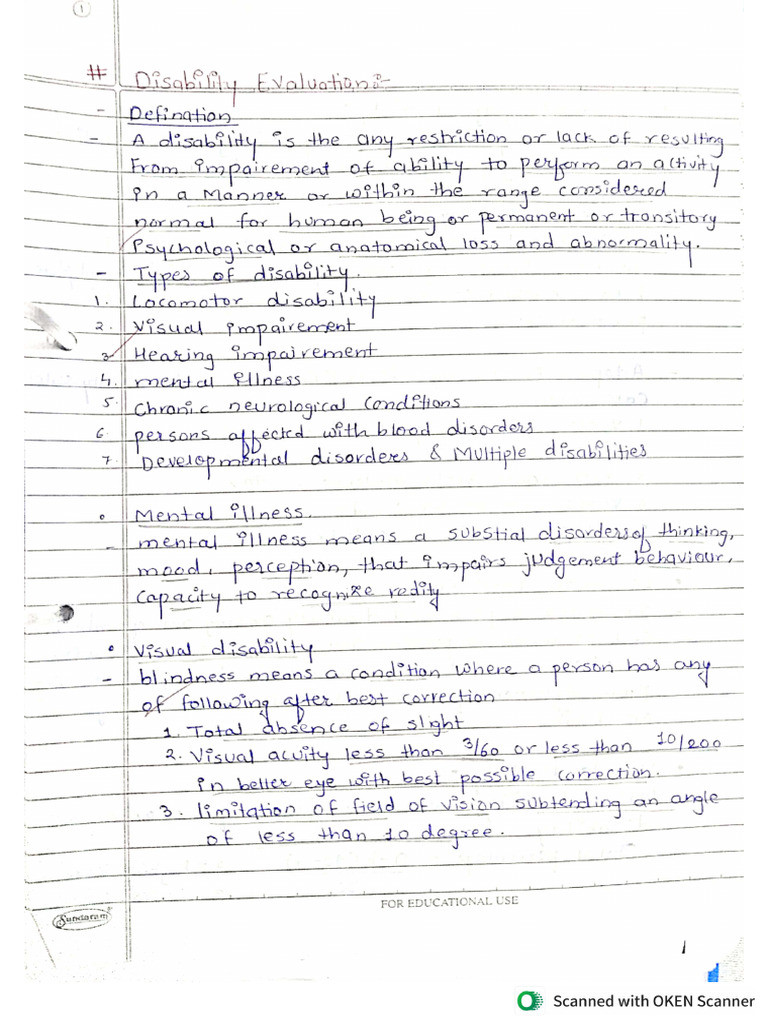 1
# Disability Evaluation:-
- Defination
- A disability is the any restriction or lack of resulting
From impairement of ability to perform an activity
in a Manner or within the range considered
normal for human being or permanent or transitory
Psychological or anatomical loss and abnormality.
- Types of disability.
1. Locomotor disability
2. Visual impairement
3 Hearing impairement
4. mental illness
5. Chronic neurological Conditions
6. persons affected with blood disorders
7. Developmental disorders & Multiple disabilities
• Mental illness.
- mental illness means a substial disorders of thinking,
mood, perception, that impairs judgement behaviour,
capacity to recognize redity
• Visual disability
- blindness means a condition where a person has any
of following after best correction
1. Total absence of slight
2. Visual acuity less than 3/60 or less than 10/200
in better eye with best possible correction.
3. limitation of field of vision subtending an angle
of less than 10 degree.
Sundaram
FOR EDUCATIONAL USE
1
Scanned with OKEN Scanner